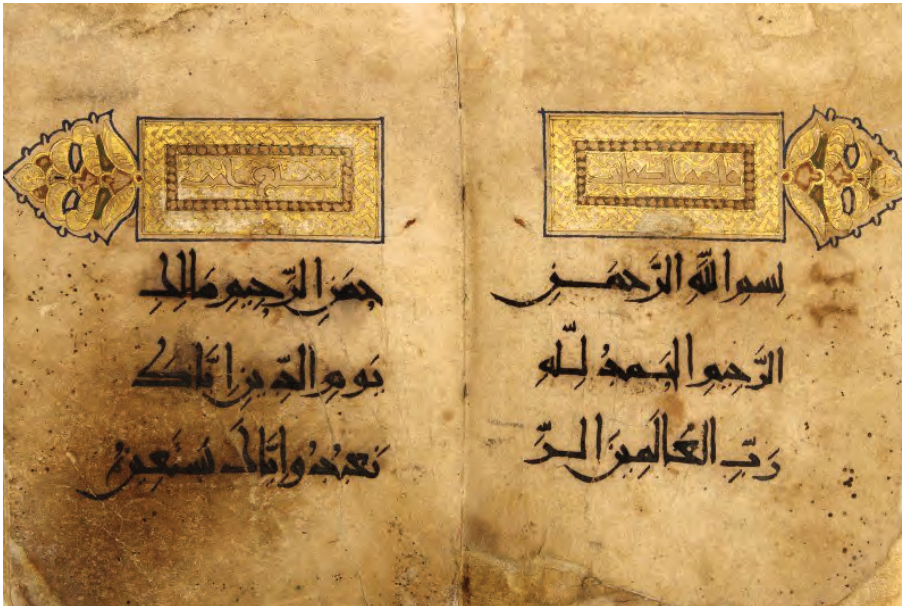 فاتحة الكتاب
بِسمِ اللَّهِ الرَّحمَنِ
الرَّحِيمِ الحَمدُ لِلَّهِ
رَبِّ العَالَمِينَ الرَّ
حمَنِ الرَّحِيمِ مَلِكِ
يَومِ الدِّينِ اِيَّاكَ
نَعبُدُ وَاِيَّاكَ نَستَعِينُ